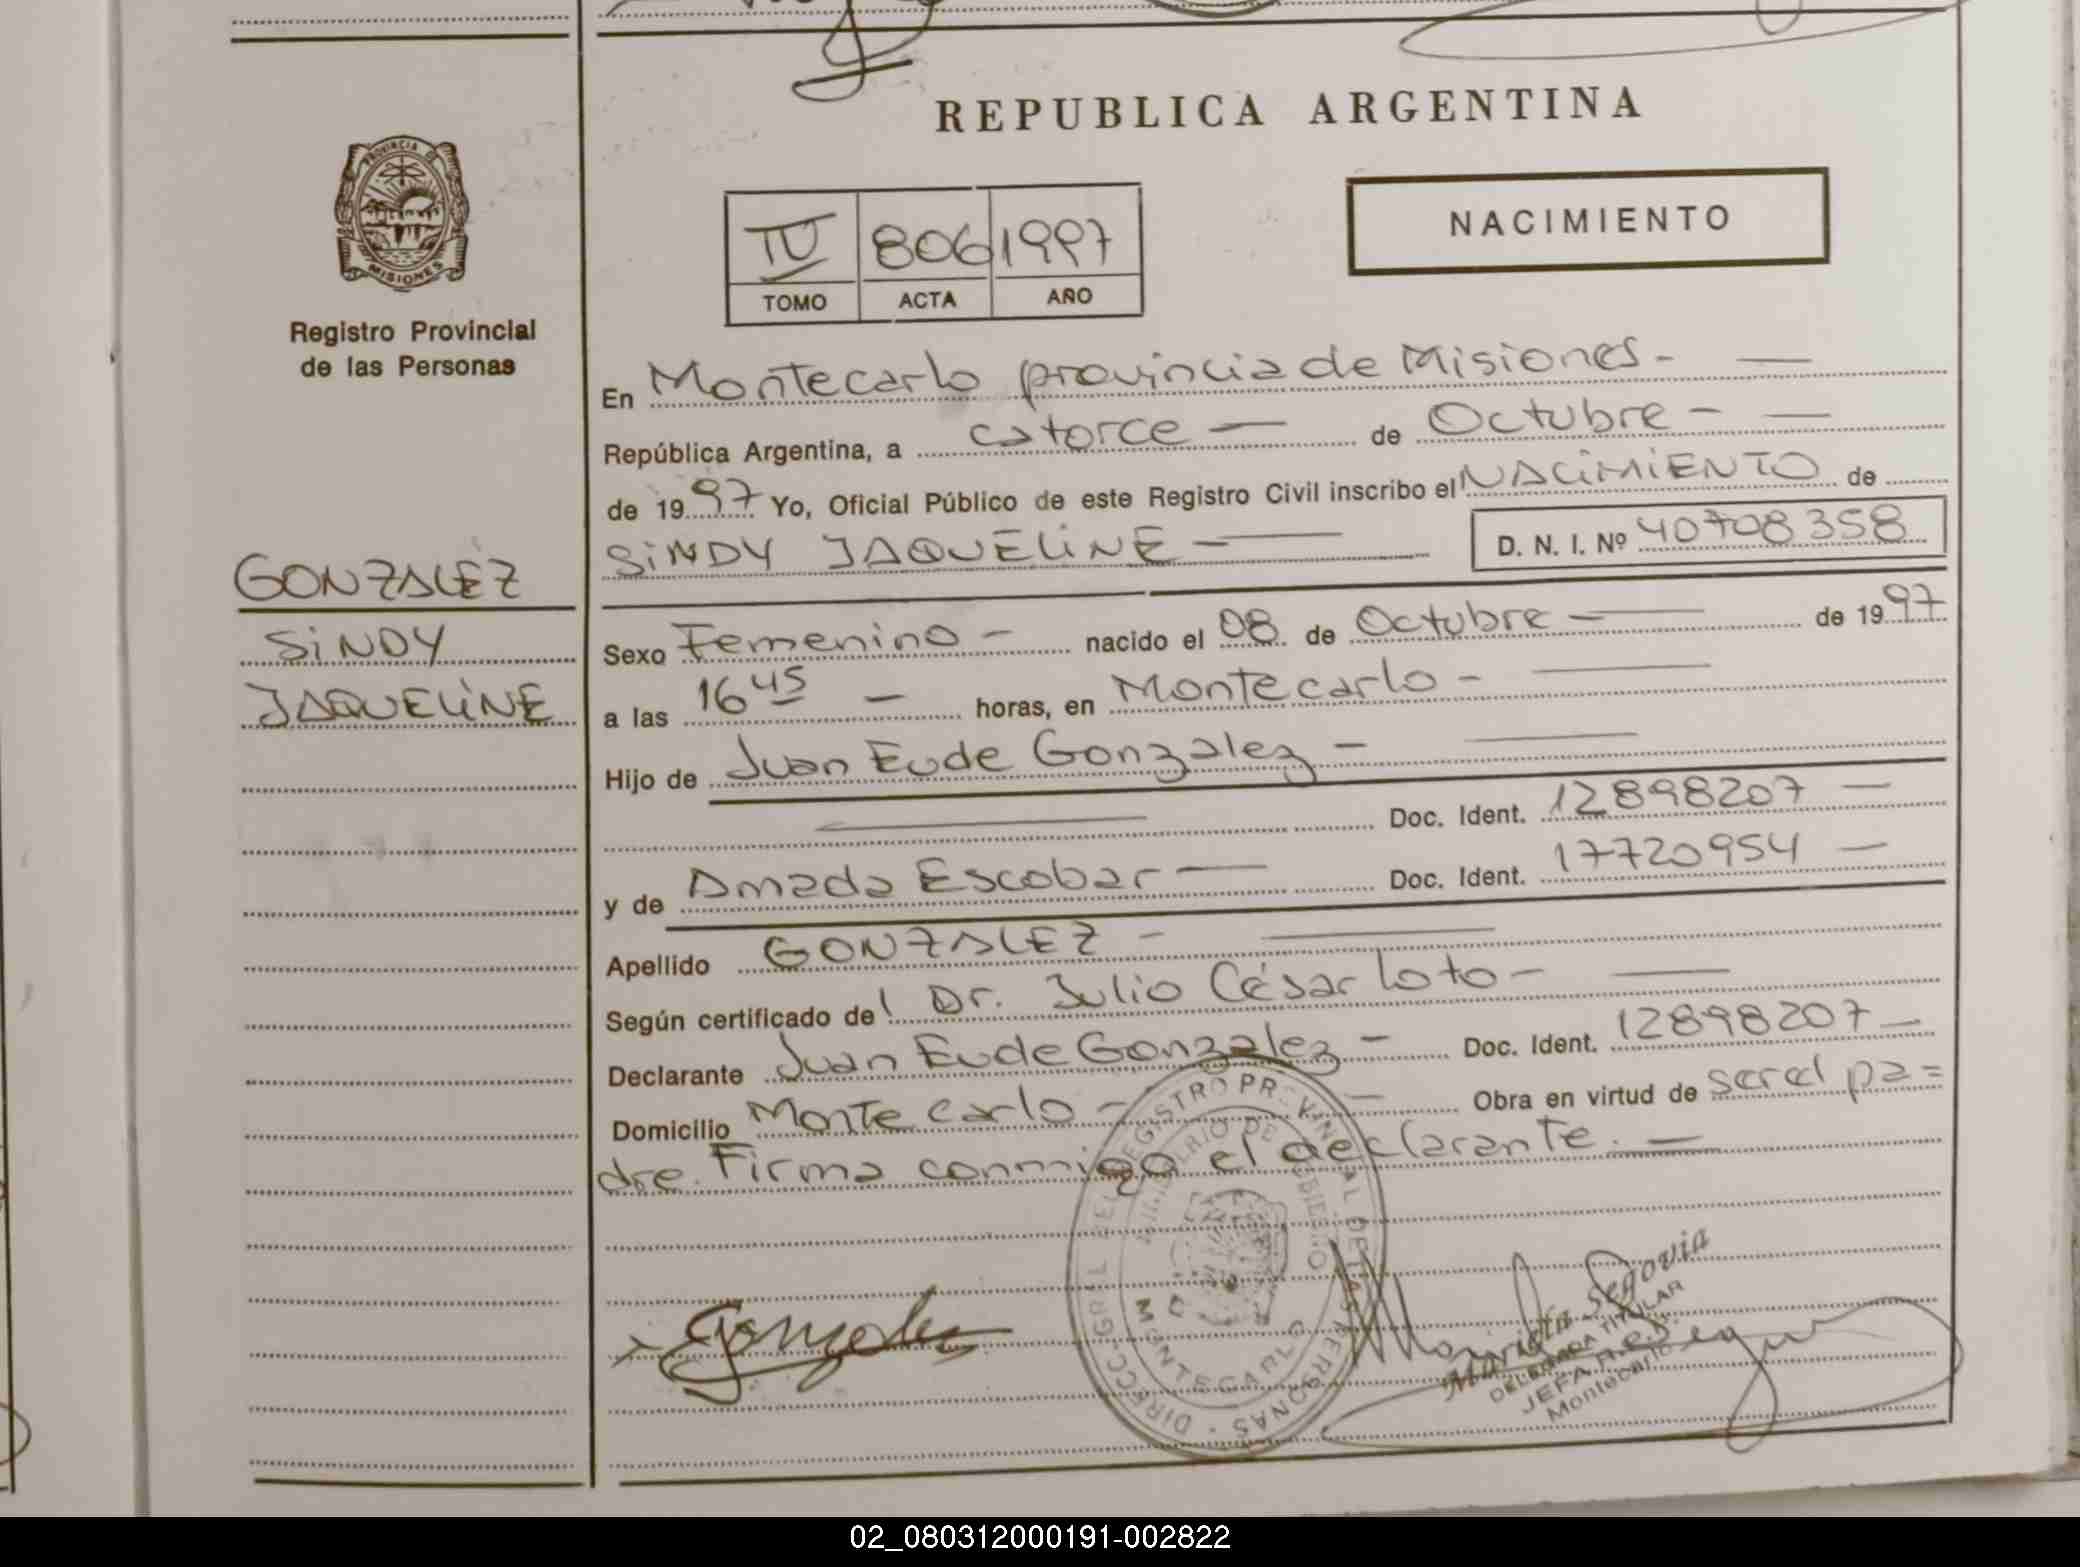 REPUBLICA ARGENTINA
PROVINCIA DE
MISIONES
Registro Provincial
de las Personas
NACIMIENTO
IV 806 1997
TOMO ACTA AÑO
En Montecarlo provincia de Misiones -
República Argentina, a catorce — de Octubre -
de 1997 Yo, Oficial Público de este Registro Civil inscribo el NACIMIENTO de
SINDY JAQUELINE - D. N. I. Nº 40708358
GONZALEZ
SINDY
JAQUELINE
Sexo Femenino - nacido el 08 de Octubre - de 1997
a las 16 45 - horas, en Montecarlo -
Hijo de Juan Eude Gonzalez -
Doc. Ident. 12898207 -
y de Amada Escobar - Doc. Ident. 17720954 -
Apellido GONZALEZ -
Según certificado del Dr. Julio César Loto -
Declarante Juan Eude Gonzalez - Doc. Ident. 12898207 -
Domicilio Montecarlo - Obra en virtud de ser el pa=
dre. Firma conmigo el declarante. —
DIRECC. GRAL. DEL REGISTRO PROVINCIAL DE LAS PERSONAS
MINISTERIO DE GOBIERNO
MONTECARLO
Gonzalez
Segovia
DELEGADA TITULAR
JEFA R.
Montecarlo
02_080312000191-002822